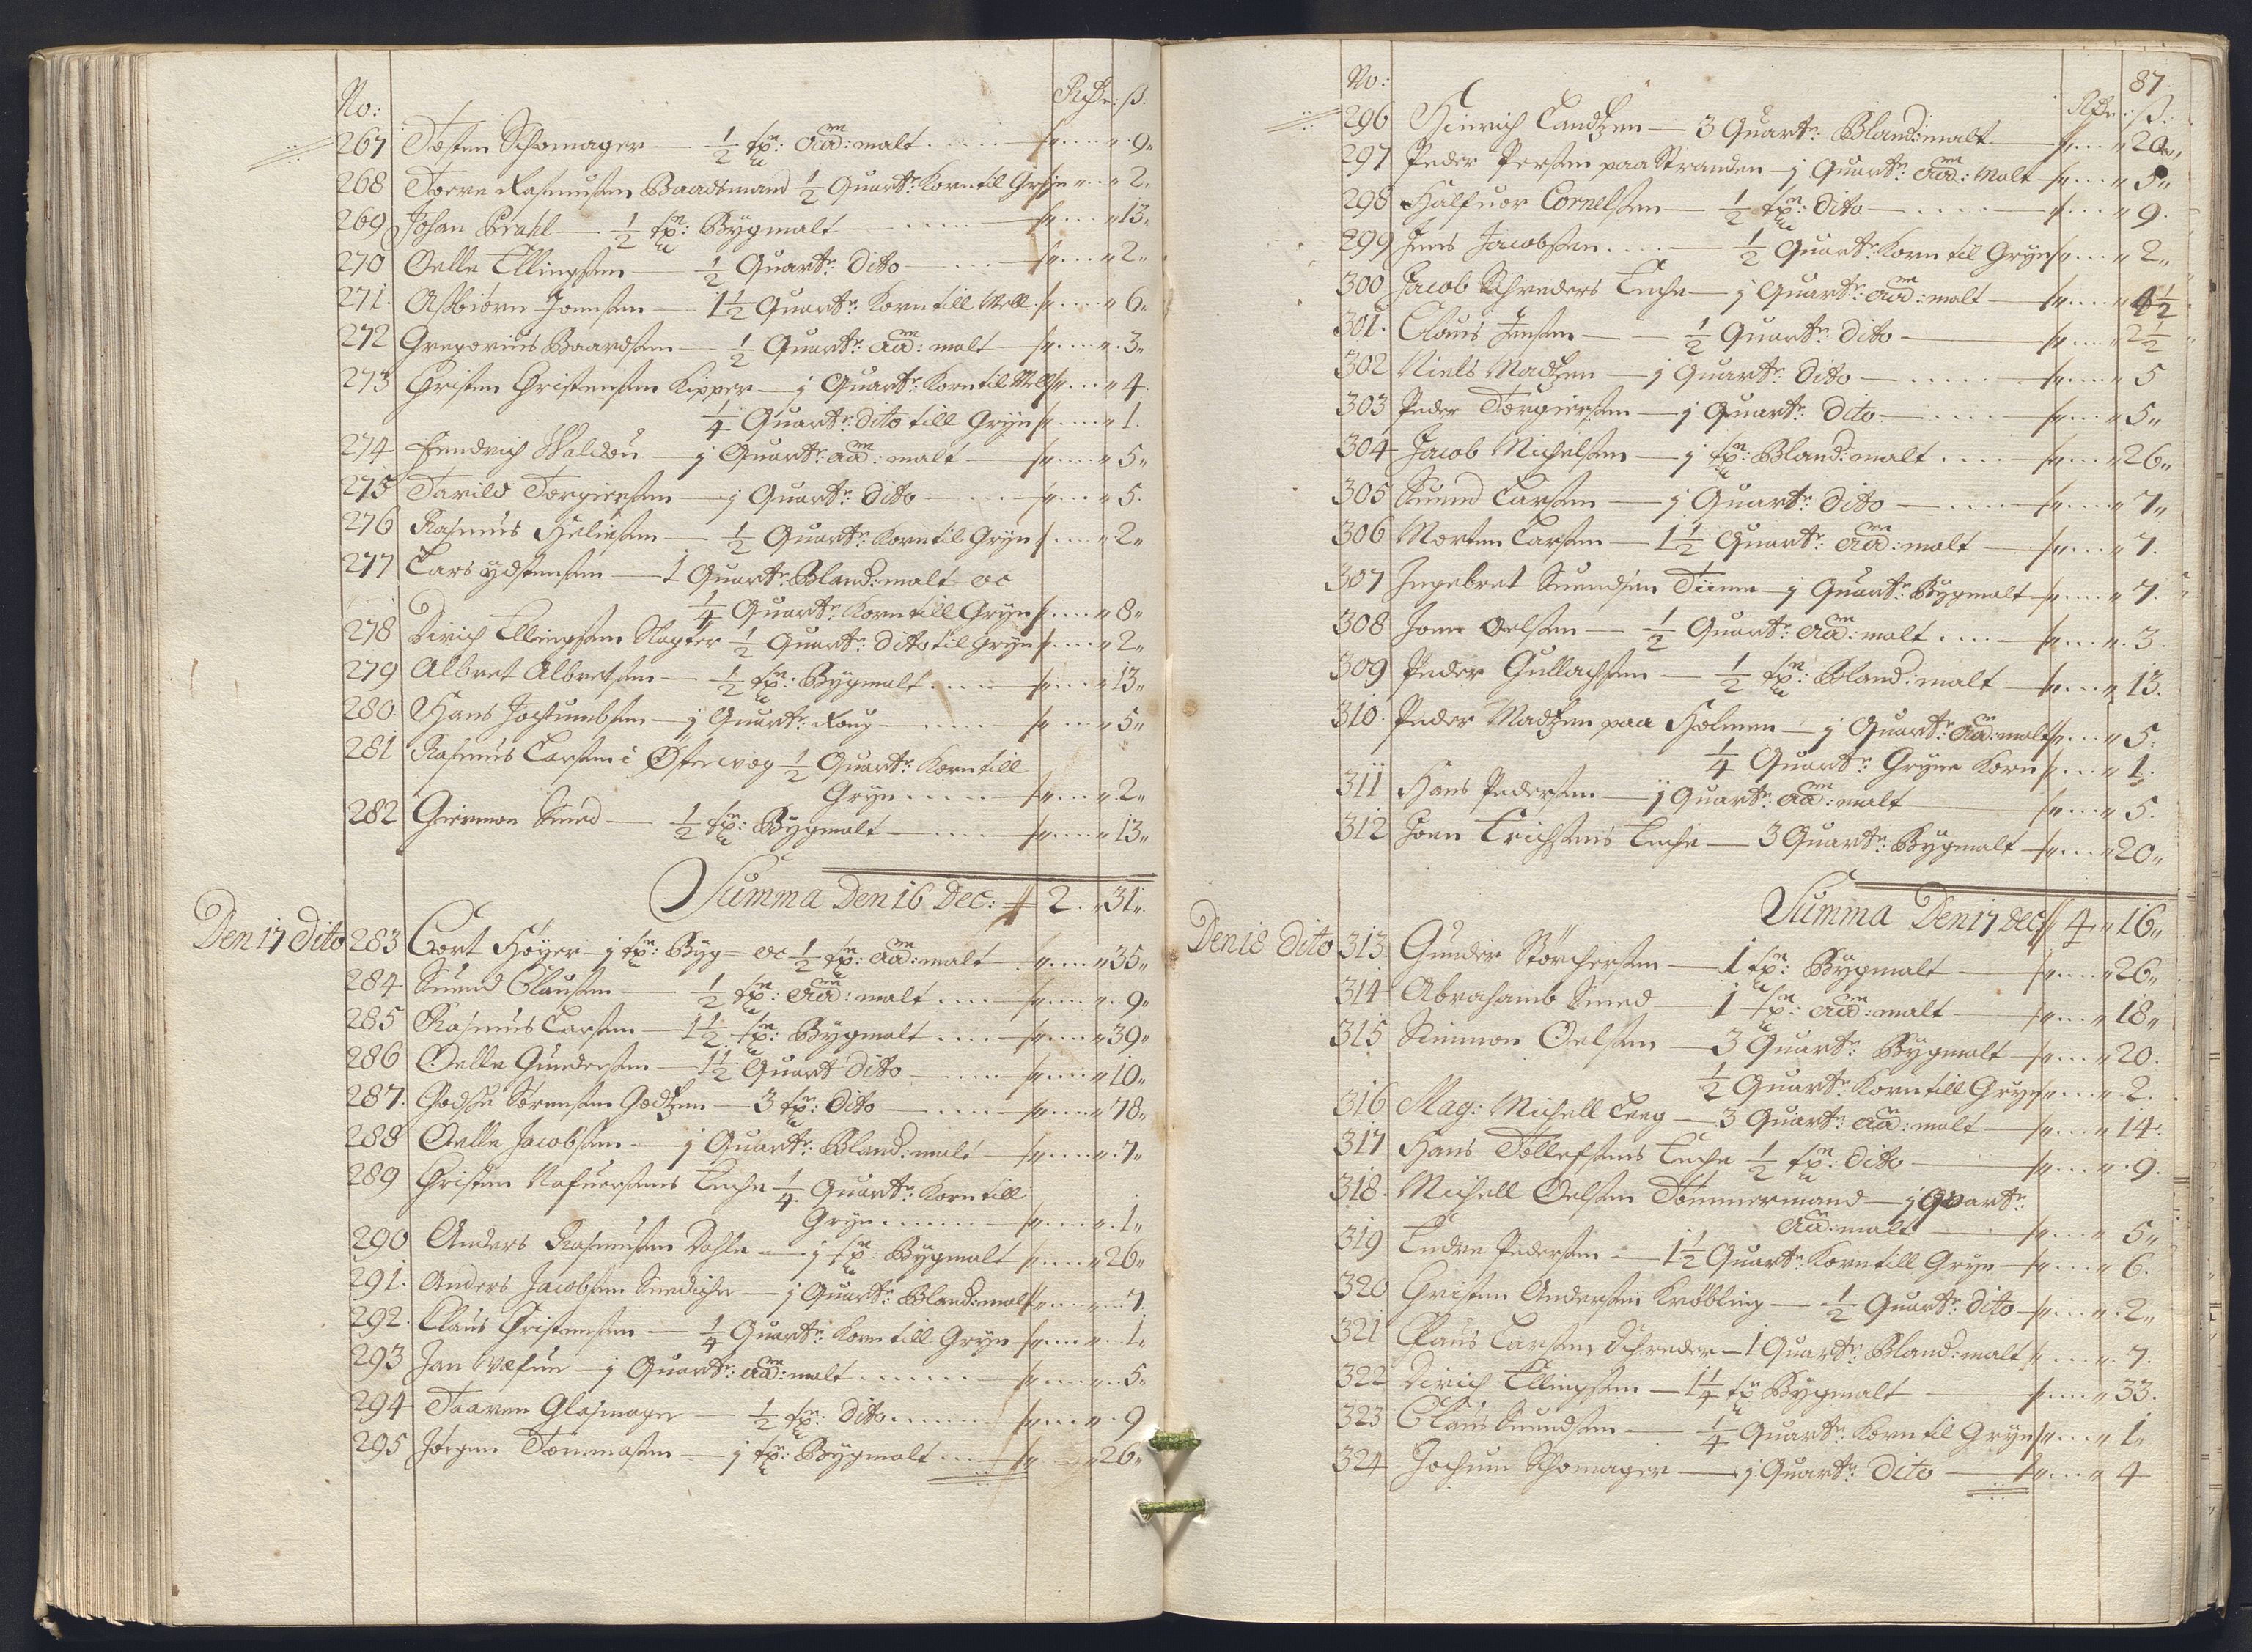 No: Rixdr: ß:
267 Tosten Schomager — ½ tn: aad: malt . . . . . „ 9„
268 Torre Rasmusen Baadsmand ½ Quartr: Korn til Gryn „ . . „ 2„
269 Johan Prahl — ½ tn: Bygmalt — . . . . . „ 13„
270 Oelle Ellingsen — ½ Quartr: dito . . . . „ 2„
271. Asbiørn Joensen — 1½ Quartr: Korn till Mell . . . „ 6„
272 Gregorius Baardsen — ½ Quartr: aad: malt . . . „ 3„
273 Christen Christensen Kipper — j Quartr: Korn til Mell . . . „ 4
¼ Quartr: dito till Gryn . . . . „ 1.
274 Hendrich Waldou — j Quartr: aad: malt — . . . „ 5„
275 Tarild Torgiersen — j Quartr: dito — . . . . „ 5.
276 Rasmus Heliesen — ½ Quartr: Korn til Gryn . . . „ 2„
277 Lars ydstensen — 1 Quartr: Bland: malt oc
¼ Quartr: Korn till Gryn . . . . „ 8„
278 Dirich Ellingsen Slagter ½ Quartr: dito til Gryn . . . . „ 2„
279 Albret Albretsen — ½ tn: Bygmalt . . . . . „ 13„
280. Hans Jochumbsen — j Quartr: Roug — . . . . „ 5„
281 Rasmus Larsen i Østervog ½ Quartr: Korn till
Gryn . . . . . „ 2„
282 Giermon Smed — ½ tn: Bygmalt — . . . . . „ 13„
Summa Den 16 Dec: 2. „ 31„
Den 17 dito 283 Cort Høyer — j tn: Byg= oc ½ tn: aad: malt — . . . „ 35„
284. Suend Clausen — ½ tn: aad: malt . . . . „ 9„
285 Rasmus Larsen — 1½ tn: Bygmalt . . . . „ 39„
286 Oelle Gundersen — 1½ Quart dito — . . . . „ 10„
287. Godske Sørensen Godtzen — 3 tn: dito — . . . . „ 78„
288 Oelle Jacobsen — j Quartr: Bland: malt — . . . „ 7„
289 Christen Rasmusens Enche ¼ Quartr: Korn till
Gryn . . . . . . . „ 1„
290 Anders Rasmusen Dahle — j tn: Bygmalt . . . . „ 26„
291. Anders Jacobsen — j Quartr: Bland: malt . . . „ 7.
292. Claus Christensen — ¼ Quartr: Korn till Gryn . . . „ 1„
293 Jan — j Quartr: aad: malt . . . . . . . „ 5„
294 Taaren Glasmager — ½ tn: dito . . . . . . „ 9
295 Jørgen Tommasen — j tn: Bygmalt . . . . „ 26„
87.
No: Rdr: ß:
296 Hinrich Landtzen — 3 Quartr: Bland: malt — . . . „ 20„
297 Peder Persen paa Stranden — j Quartr: aad: Malt . . . „ 5„
298 Halfuor Cornelsen — ½ tn: dito — . . . . „ 9.
299 Jens Jacobsen . . . . — ½ Quartr: Korn til Gryn . . . „ 2„
300 Jacob Schreders Enche — j Quartr: aad: malt — . . . „ 4½
301. Claus Jensen — — ½ Quartr: dito — . . . „ 2½
302 Niels Madtzen — j Quartr: dito — . . . . „ 5
303 Peder Torgiersen — j Quartr: dito — . . . . „ 5„
304 Jacob Michelsen — j tn: Bland: malt . . . . „ 26„
305 Suend Larsen — j Quartr: dito — . . . . „ 7„
306 Morten Larsen — 1½ Quartr: aad: malt — . . . „ 7.
307 Ingebret Suendsen Tiinn — j Quartr: Bygmalt — . . . „ 7.
308 Jonn Oelsen — ½ Quartr: aad: malt . . . . „ 3.
309 Peder Gullachsen — ½ tn: Bland: malt — . . . „ 13.
310. Peder Madtzen paa Holmen — j Quartr: aad: malt . . . „ 5.
¼ Quartr: Gryn Korn . . . „ 1.
311 Hans Pedersen — j Quartr: aad: malt — . . . „ 5.
312 Joen Erichsens Enche — 3 Quartr: Bygmalt — . . . „ 20„
Summa Den 17 dec 4 „ 16„
Den 18 dito 313. Gunder Størchersen — 1 tn: Bygmalt — . . . „ 26„
314 Abrahamb Smed — 1 tn: aad: malt — . . . „ 18„
315 Simmon Oelsen — 3 Quartr: Bygmalt — . . . „ 20.
½ Quartr: Korn till Gryn . . . . „ 2.
316 Mag: Michell Leeg — 3 Quartr: aad: malt — . . . „ 14.
317 Hans Tollefsens Enche ½ tn: dito — . . . „ 9.
318. Michell Oelsen Tømmermand — j Quartr:
aad: malt — . . . „ 5„
319 Endre Pedersen — 1½ Quartr: Korn till Gryn — . . . „ 6.
320 Christen Andersen Krøbling — ½ Quartr: dito — . . . „ 2„
321 Claus Larsen Schreder — 1 Quartr: Bland: malt . . . „ 7.
322 Dirich Ellingsen — 1¼ tn Bygmalt — . . . „ 33.
323 Claus Suendsen — ¼ Quartr: Korn til Gryn . . . „ 1„
324 Jochum Schomager — j Quartr: dito — . . . „ 4